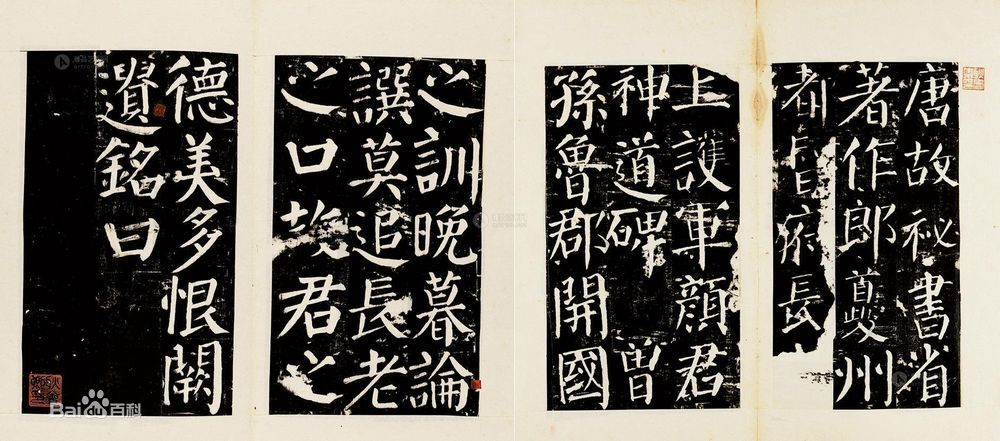 唐故祕書省
著作郎夔州
都督府長
上護軍顏君
神道碑 曾
孫魯郡開國
之訓晚暮論
譔莫追長老
之口故君之
德美多恨闕
遺銘曰
Baidu百科